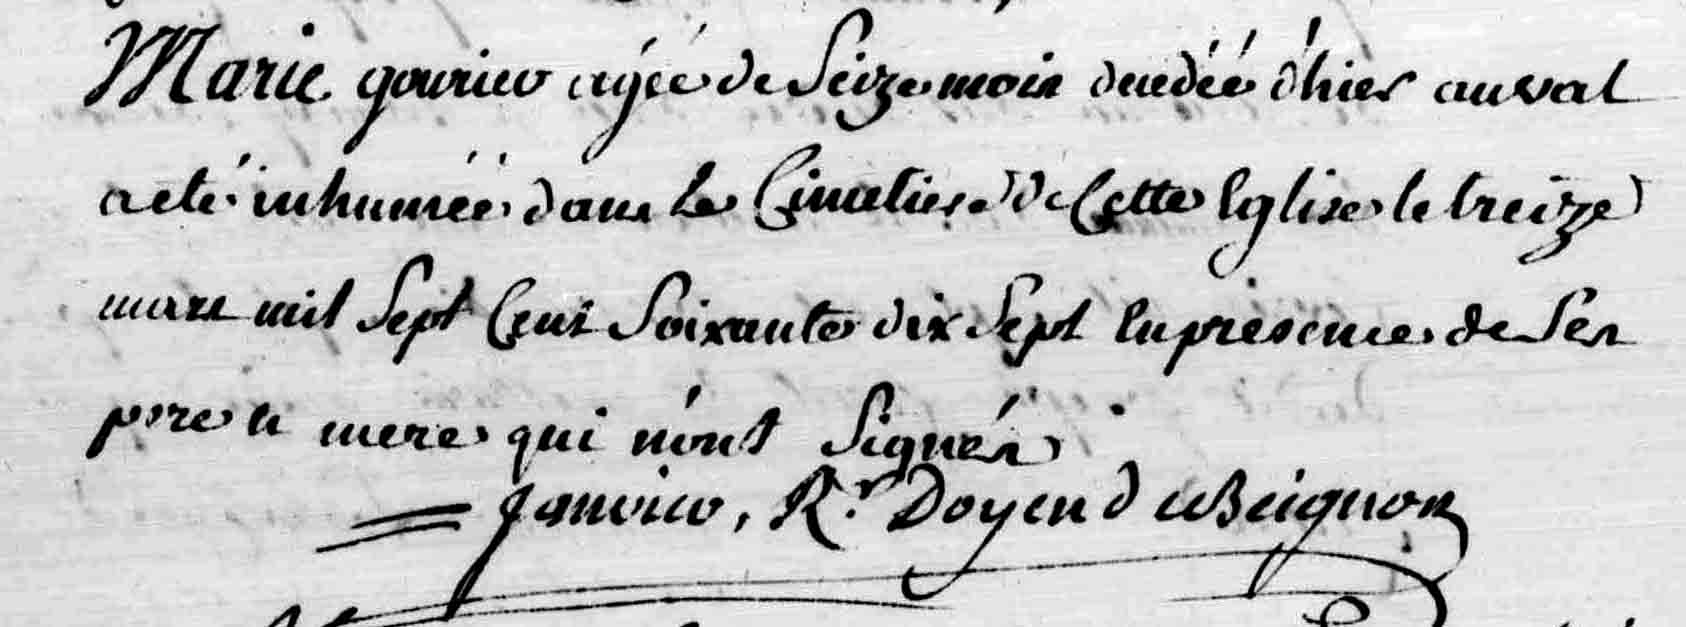 Marie gourier agéé de Seize mois decedéé d'hier au val
a eté inhuméé dans Le Cimetiere de Cette Eglise le treize
mars mil Sept Cent Soixante dix Sept En presence de Ses
pere et mere qui n'ont Signés
Janvier, Rr Doyen de Beignon